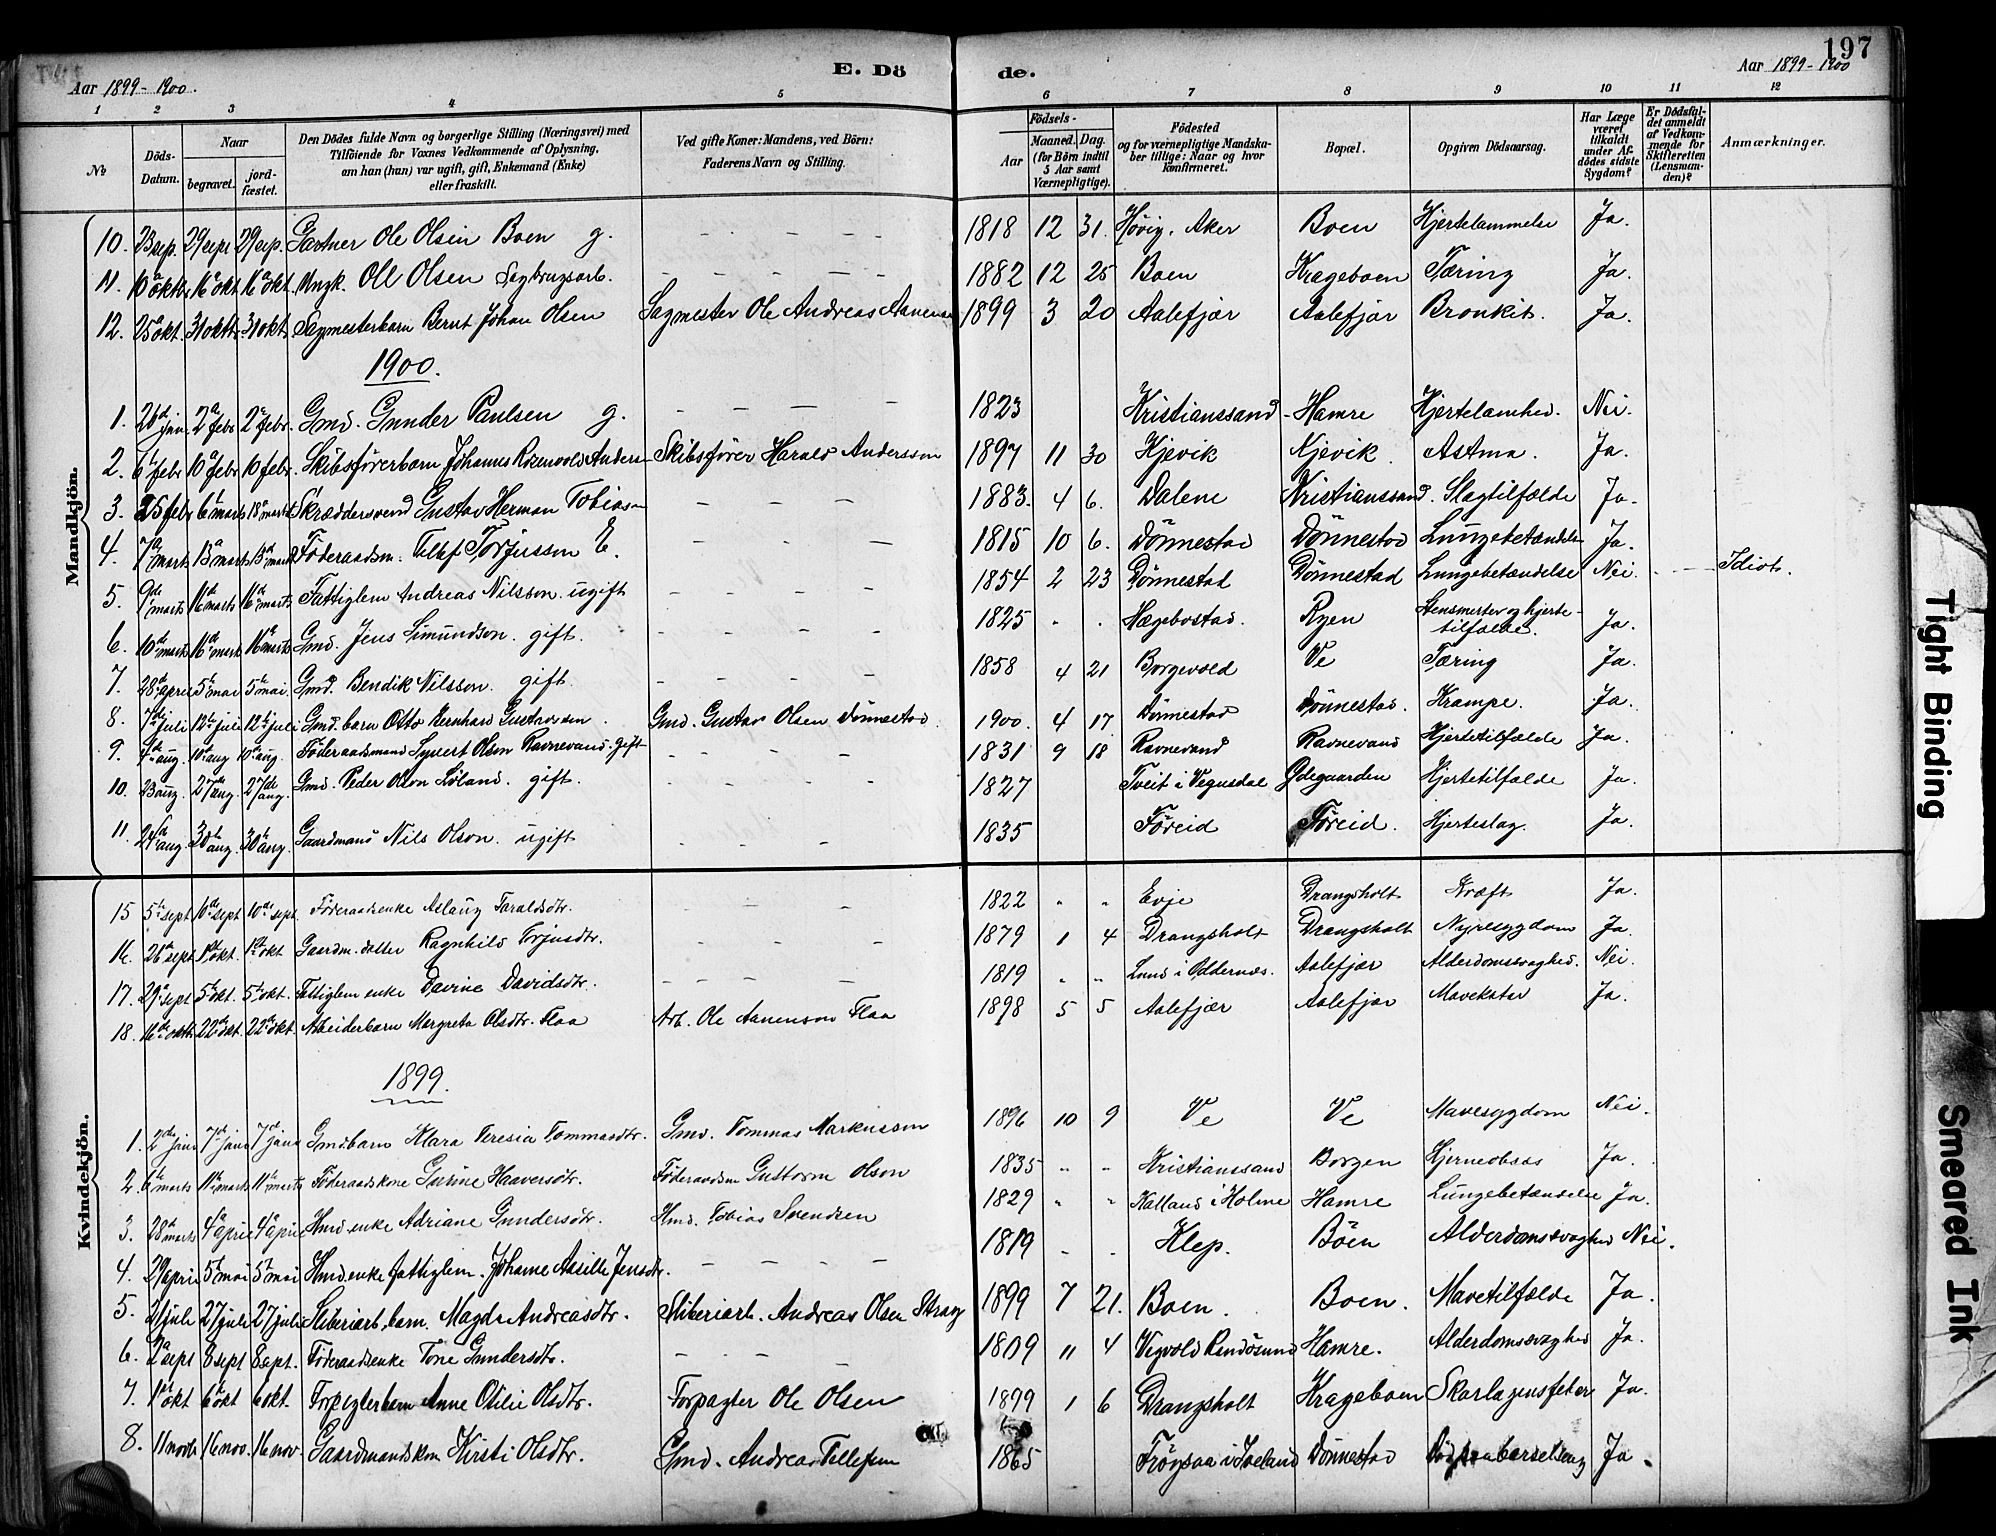 197
E. Dö de.
Aar 1899-1900.
Aar 1899-1900
1 2 3 4 5 6 7 8 9 10 11 12
No
Döds-Datum.
Naar
begravet.
jord-fæstet.
Den Dödes fulde Navn og borgerlige Stilling (Næringsvei) med
Tilföiende for Voxnes Vedkommende af Oplysning,
om han (hun) var ugift, gift, Enkemand (Enke)
eller fraskilt.
Ved gifte Koner: Mandens, ved Börn:
Faderens Navn og Stilling.
Födsels-
Aar
Maaned. Dag.
(for Börn indtil
5 Aar samt
Værnepligtige).
Födested
og for værnepligtige Mandska-
ber tillige: Naar og hvor
konfirmeret.
Bopæl.
Opgiven Dödsaarsag.
Har Læge
været
tilkaldt
under Af-
dödes sidste
Sygdom?
Er Dödsfal-
det anmeldt
af Vedkom-
mende for
Skifteretten
(Lensman-
den)?
Anmærkninger.
Mandkjön.
10. 23 sep. 29 sept 29 sep. Gartner Ole Olsen Boen g. - - - - 1818 12 31. Høvig. Aker Boen Hjertelammelse Ja.
11. 10 oktbr 16 okt 16 okt. Ungk. Ole Olsen Sagbrugsarb. - - - - 1882 12 25 Boen Krageboen Tæring Ja.
12. 25 okt. 31 oktbr 31 okt. Sagmesterbarn Bernt Johan Olsen Sagmester Ole Andreas Aanensen 1899 3 20 Aalefjær Aalefjær Bronkit. Ja.
1900.
1. 26 jan 2 febr 2 febr. Gmd. Gunder Paulsen g. - - - - 1823 Kristianssand Hamre Hjertelamhed. Nei.
2. 6 febr 10 febr 10 febr. Skibsførerbarn Johannes Rosenvold Anders- Skibsfører Harald Andersson 1897 11 30 Kjevik Kjevik. Astma. Ja.
3. 25 febr 6 marts 18 marts Skræddersvend Gustav Herman Tobias- - - - 1883. 4 6. Dalene Kristianssand. Slagtilfælde Ja.
4. 7 marts 13 marts 13 marts Föderaadsm. Tellef Torjussen E. - - - - 1815 10 6. Dönnestad Dönnestad Lungebetændelse Ja.
5. 9de marts 16 marts 16 marts Fattiglem Andreas Nilsson. ugift - - - - 1854 2 23 Dönnestad Dönnestad Lungebetændelse Nei. Idiot.
6. 10 marts 16 marts 16 marts Gmd. Jens Simundson. gift. - - - - 1825 " " Hægebostad. Ryen hjertetilfælde. Ja.
7. 28 april 5 mai 5 mai. Gmd. Bendik Nilsson. gift. - - - - 1858 4 21 Borgevold Ve Tæring Ja.
8. 7 juli 12 juli 12 juli Gmd. barn Otto Bernhard Gustavsen. Gmd. Gustav Olsen Dönnestad. 1900. 4 17 Dönnestad Dönnestad. Krampe. Ja.
9. 4 aug. 10 aug 10 aug. Föderaadsmand Syvert Olson Ravnevand. gift - - - - 1831 9 18 Ravnevand Ravnevand Hjertetilfælde Ja.
10. 23 aug. 27de aug 27de aug. Gmd. Peder Olson Löland. gift. - - - - 1827 Tveit i Vegusdal Ödegaarden Hjertetilfælde Ja.
11. 24 aug. 30 aug. 30 aug. Gaardmand Nils Olson. ugift - - - 1835 Föreid Föreid. Hjerteslag. Ja.
Kvindekjön.
15 5 sept 10 sept 10 sept. Föderaadsenke Aslaug Taraldsdtr. - - - - 1822 " " Evje Drangsholt Kræft Ja.
16. 26 sept 1 okt. 1 okt Gaardm. datter Ragnhild Torjusdtr. - - - - 1879 1 4 Drangsholt Drangsholt Nyresygdom Ja.
17. 29 sept 5 okt. 5 okt. Fattiglem enke Davine Davidsdtr. - - - 1819 " " Lund i Oddernæs. Aalefjær Alderdomssvaghed. Nei.
18. 16 oktbr 22 okt. 22 okt. Arbeiderbarn Margreta Olsdtr. Flaa Arb. Ole Aanenson Flaa 1898 5 5 Aalefjær Aalefjær Mavekatar Ja.
1899.
1. 2 janr 7 janr 7 janr Gmdbarn Klara Teresia Tommasdtr. Gmd. Tommas Markusson 1896 10 9 Ve Ve Mavesygdom Nei.
2. 6 marts 11 marts 11 marts Föderaadskone Gurine Haaversdtr. Föderaadsm Guttorm Olson 1835 " " Kristianssand Borgen Hjerneabsas Ja.
3. 28 marts 4 april 4 april Hmd enke Adriane Gundersdtr. Hmd. Tobias Svendsen 1829 " " Kalland i Holme Hamre Lungebetændelse Ja.
4. 29 april 5 mai 5 mai Hmd. enke fattiglem. Johanne Aasille Jensdtr. - - - - 1819 " " Klep. Böen Alderdomssvaghed Nei.
5. 21 juli 27 juli 27 juli Sliberiarb. barn. Magda Andreasdtr. Sliberiarb. Andreas Olsen Stray 1899 7 21. Boen. Boen. Mavetilfælde Ja.
6. 2 sept 8 sept 8 sept. Föderaadsenke Tone Gundersdtr. - - - - 1809 11 4 Vigvold Randösund Hamre. Alderdomssvaghed Ja.
7. 1 okt 6 okt 6 okt. Forpagterbarn Anne Otilie Olsdtr. Forpagter Ole Olsen 1899 1 6 Drangsholt Krageboen Skarlagensfeber Ja.
8. 11 novbr 16 nov. 16 nov. Gaardmandskone Kirsti Olsdtr. Gmd. Andreas Tellefsen 1865 Frøysaa i Iveland Dönnestad Död paa barselseng Ja.
Tight Binding
Smeared Ink